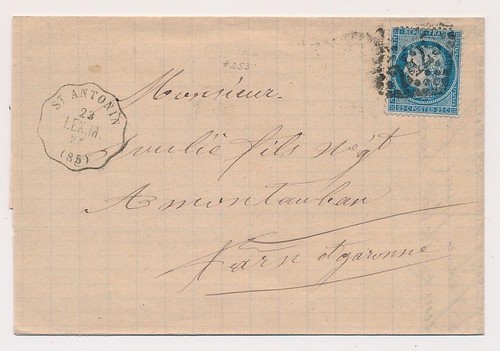 REPUB·FRANC
25 C·POSTES·25 C
Monsieur
ST ANTONIN
23
LEX.M.
(85)
fils Négt
A montauban
Tarn et garonne